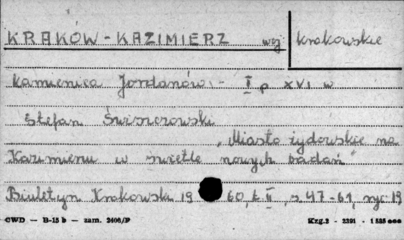 KRAKÓW - KAZIMIERZ woj krakowskie
Kamienica Jordanów - II p XVI w
Stefan Świszczowski
"Miasto żydowskie na
Kazimierzu w świetle nowych badań"
Biuletyn Krakowski 19 60, t. II, s. 47-61, ryc 19
CWD — B-15 b — zam. 2406/P Krg.2 - 2291 -